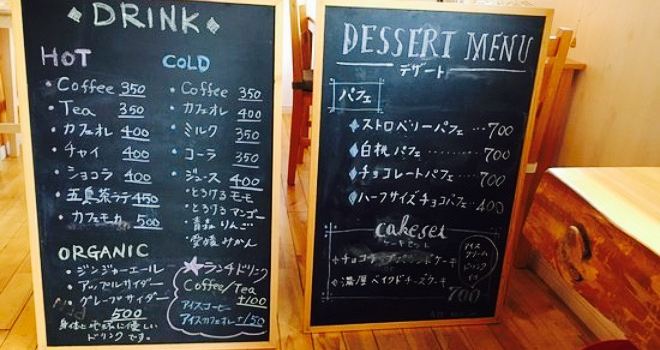 DRINK
HOT
・Coffee 350
・Tea 350
・カフェオレ 400
・チャイ 400
・ショコラ 400
・五島茶ラテ 450
・カフェモカ 500
COLD
・Coffee 350
・カフェオレ 400
・ミルク 350
・コーラ 350
・ジュース 400
・とろけるモモ
・とろけるマンゴー
・青森りんご
・愛媛みかん
ORGANIC
・ジンジャーエール
・アップルサイダー
・グレープサイダー
500
身体と地球に優しい
ドリンクです。
★ランチドリンク
Coffee/Tea
+100
アイスコーヒー
アイスカフェオレ +150
DESSERT MENU
デザート
パフェ
◆ストロベリーパフェ …700
◆白桃パフェ …… 700
◆チョコレートパフェ …700
◆ハーフサイズチョコパフェ …400
cakeset
ケーキセット
アイス
クリーム
ドリンク
・濃厚ベイクドチーズケーキ
700